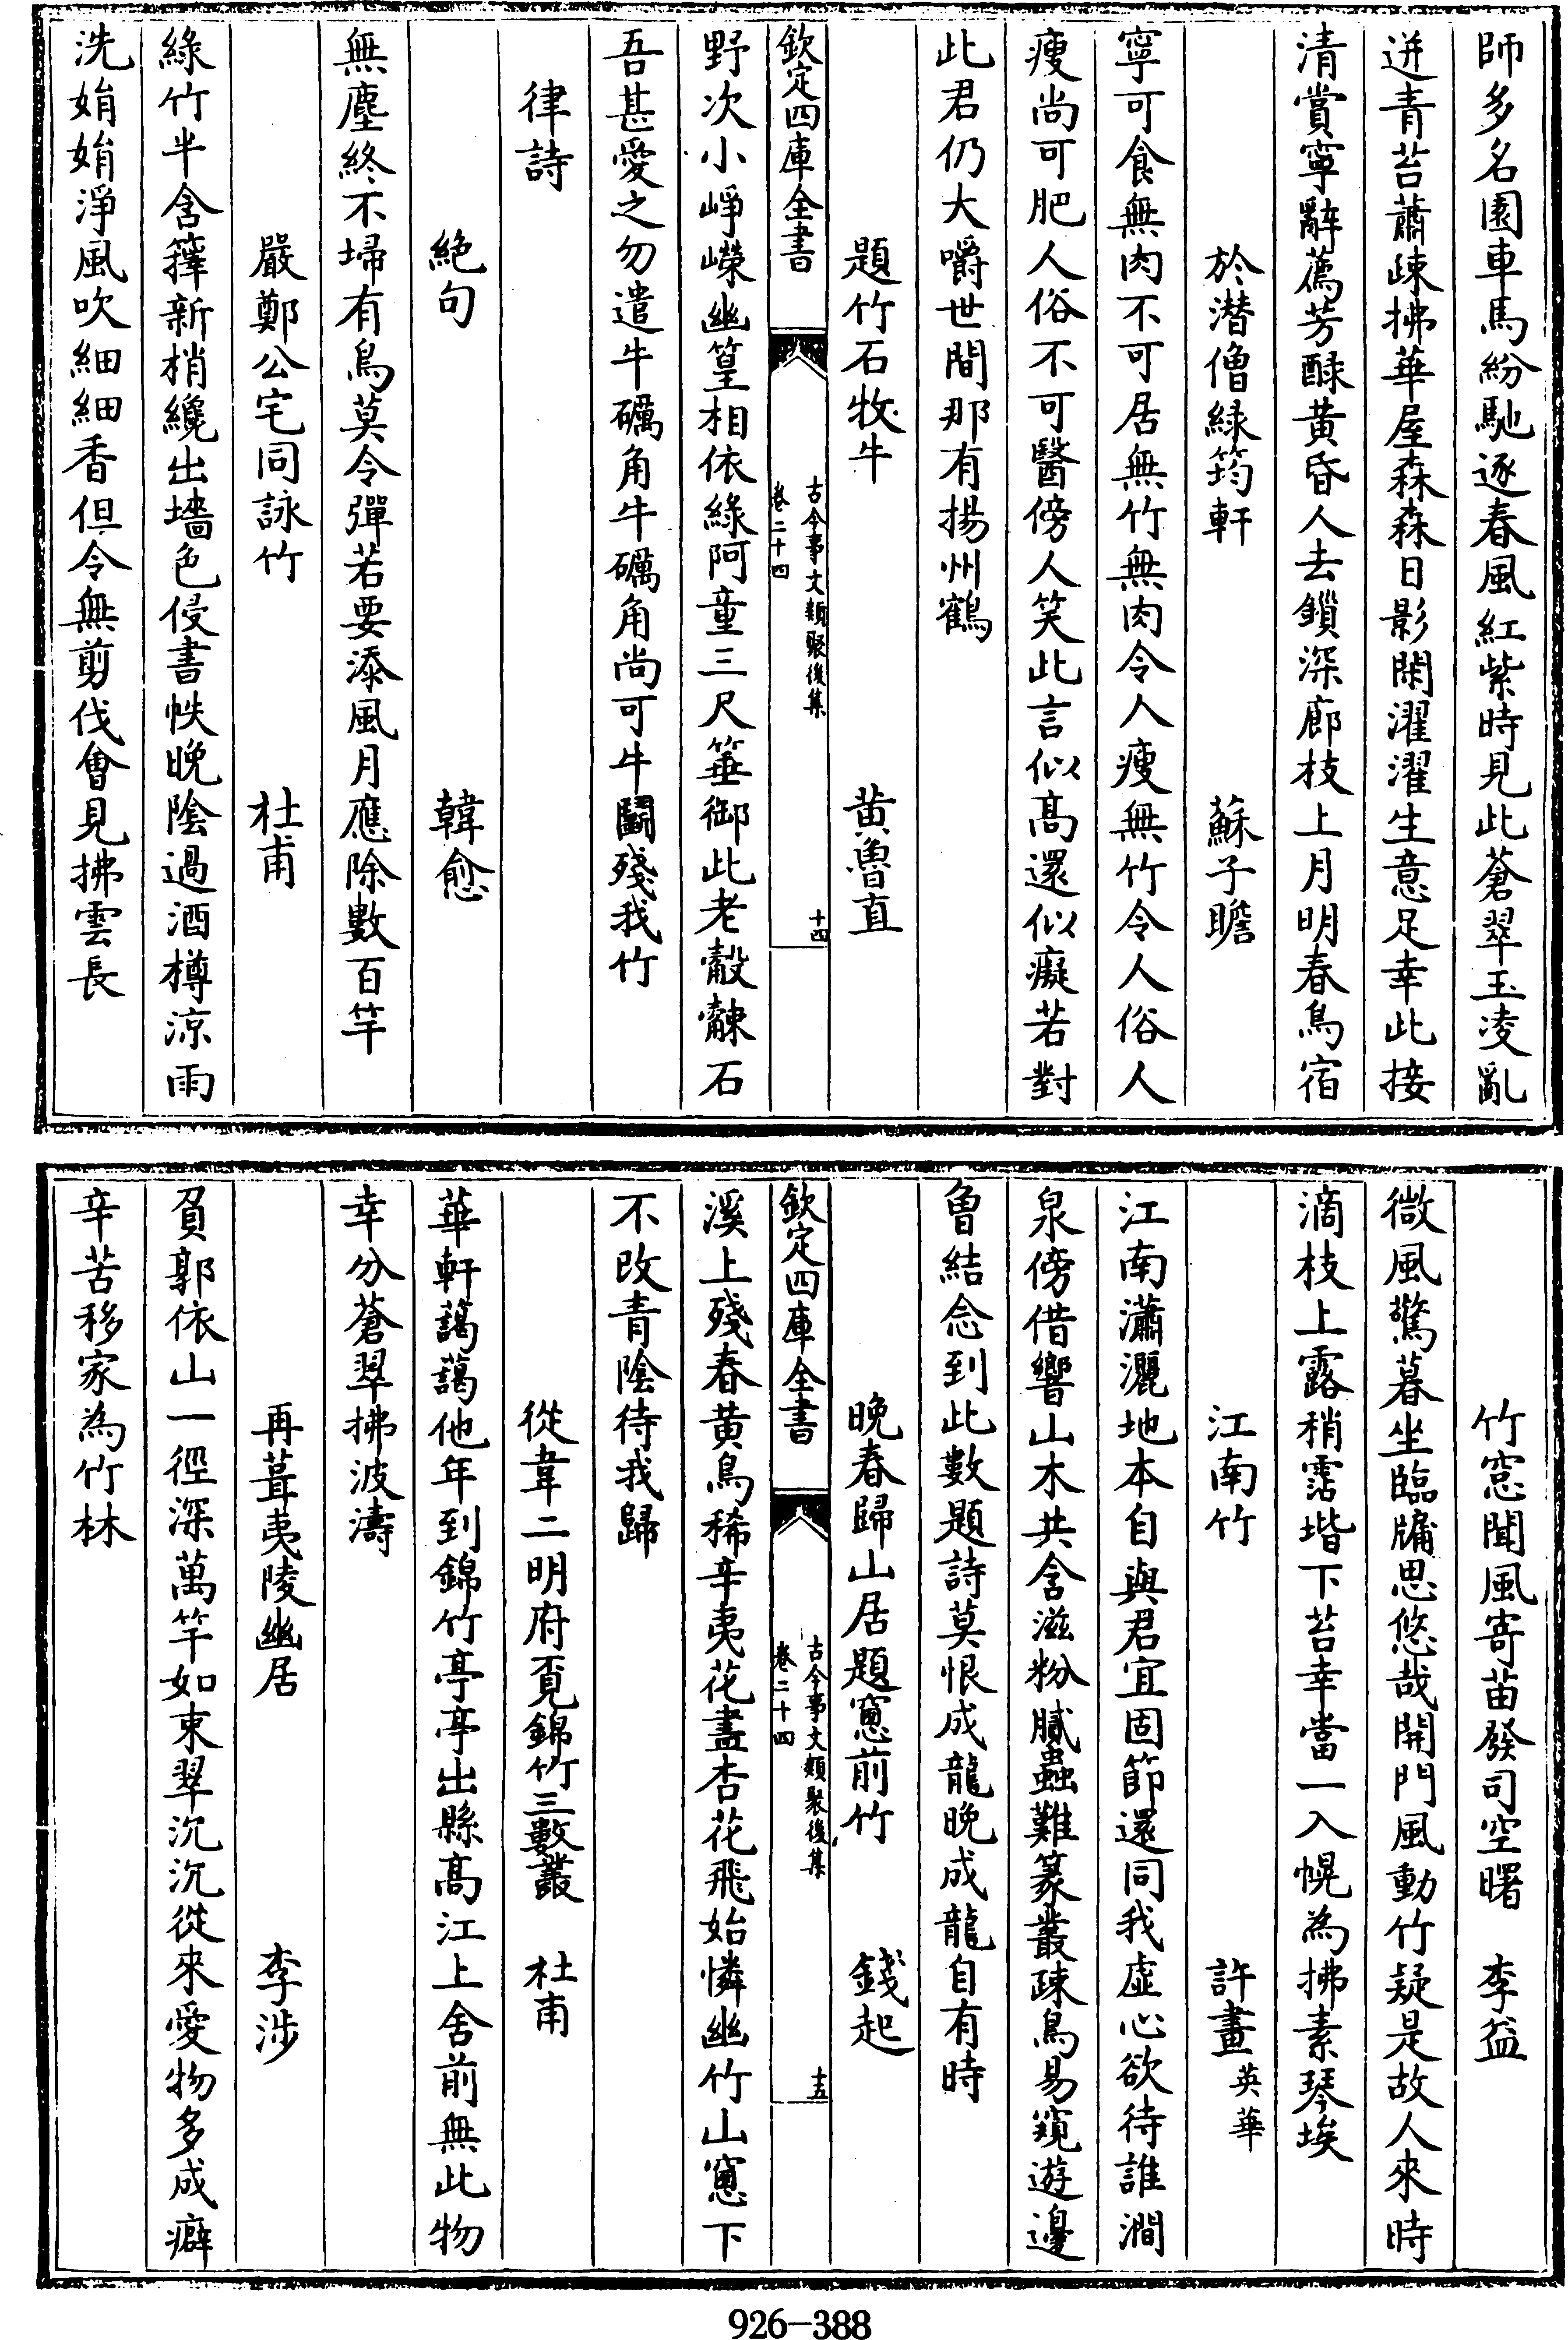 師多名園車馬紛馳逐春風紅紫時見此蒼翠玉凌亂
迸青苔蕭疎拂華屋森森日影閑濯濯生意足幸此接
清賞寧辭薦芳醁黄昏人去鎖深廊枝上月明春鳥宿
於潜僧緑筠軒 蘇子瞻
寧可食無肉不可居無竹無肉令人瘦無竹令人俗人
瘦尚可肥人俗不可醫傍人笑此言似髙還似癡若對
此君仍大嚼世間那有揚州鶴
題竹石牧牛 黄魯直
欽定四庫全書 古今事文類聚後集 卷二十四 十四
野次小崢嶸幽篁相依綠阿童三尺箠御此老觳觫石
吾甚愛之勿遣牛礪角牛礪角尚可牛鬬殘我竹
律詩
絶句 韓愈
無塵終不埽有鳥莫令彈若要添風月應除數百竿
嚴鄭公宅同詠竹 杜甫
綠竹半含籜新梢纔出墻色侵書帙晚陰過酒樽涼雨
洗娟娟淨風吹細細香但令無剪伐會見拂雲長
竹窓聞風寄苗發司空曙 李益
微風驚暮坐臨牗思悠哉開門風動竹疑是故人來時
滴枝上露稍霑堦下苔幸當一入幌為拂素琴埃
江南竹 許畫 英華
江南瀟灑地本自與君宜固節還同我虛心欲待誰澗
泉傍借響山木共含滋粉膩蟲難篆叢疎鳥易窺遊邊
曽結念到此數題詩莫恨成龍晚成龍自有時
晚春歸山居題窻前竹 錢起
欽定四庫全書 古今事文類聚後集 卷二十四 十五
溪上殘春黄鳥稀辛夷花盡杏花飛始憐幽竹山窻下
不改青陰待我歸
從韋二明府覔錦竹三數叢 杜甫
華軒藹藹他年到錦竹亭亭出縣髙江上舍前無此物
幸分蒼翠拂波濤
再葺夷陵幽居 李涉
負郭依山一徑深萬竿如束翠沉沉從來愛物多成癖
辛苦移家為竹林
926-388